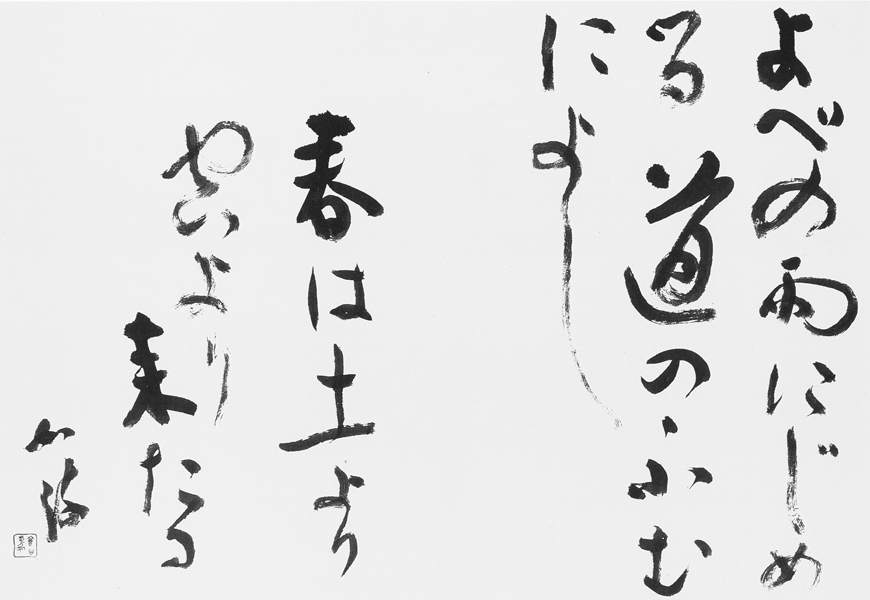 よべの雨にじめ
る道のゝふむ
によし
春は土より
より
来たる